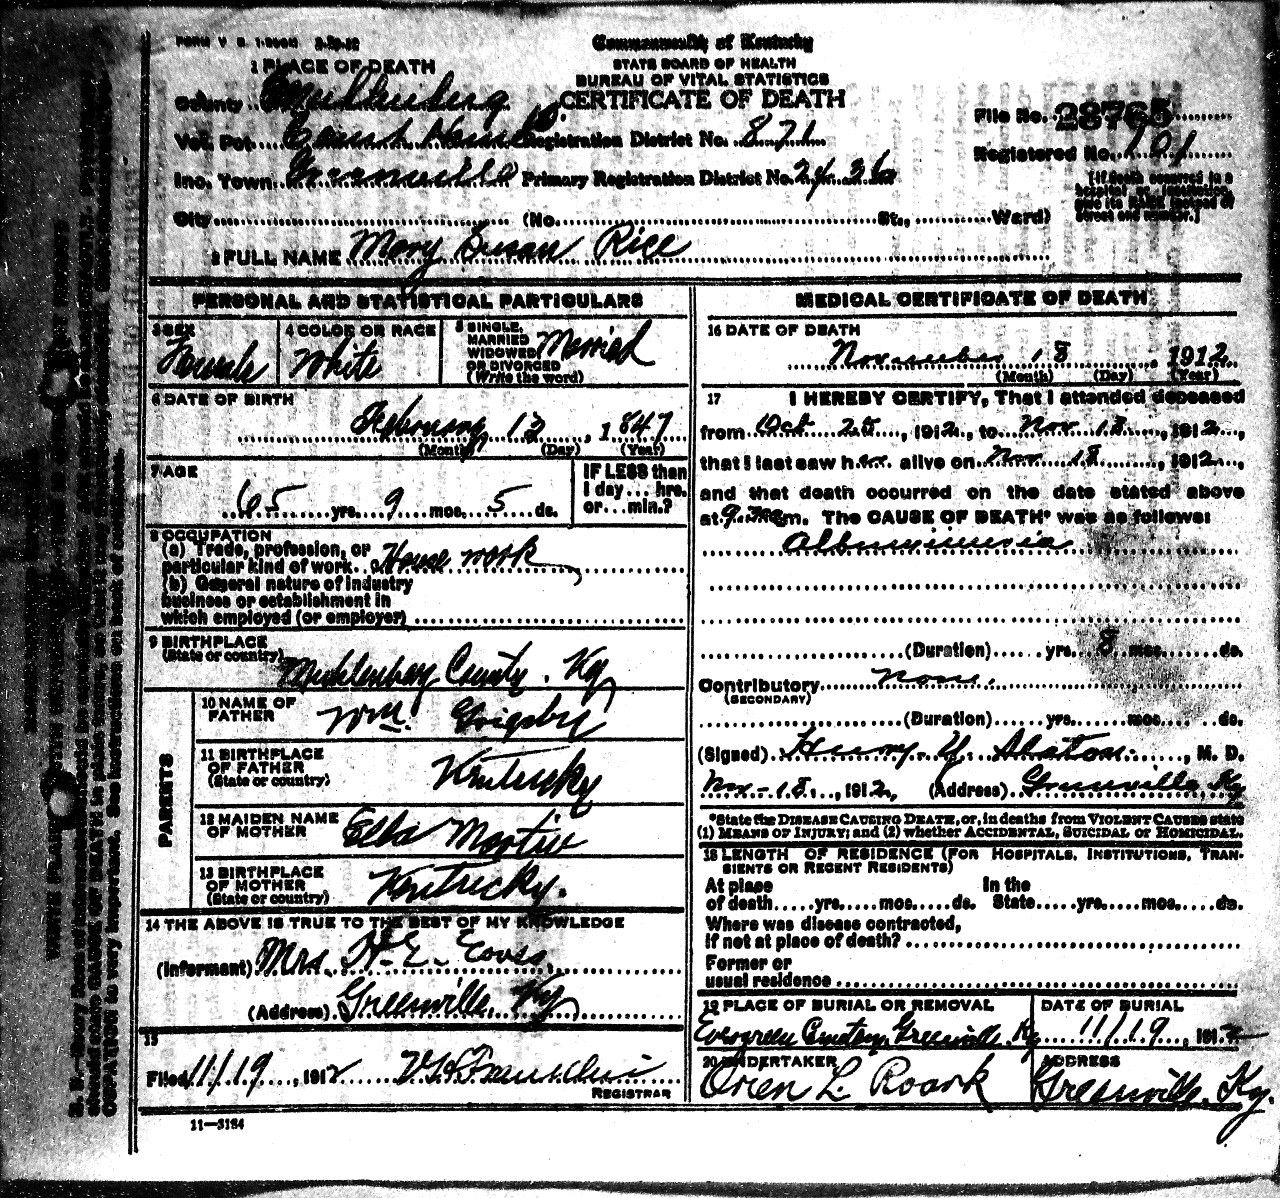 FORM V. S. 1-
Commonwealth of Kentucky
STATE BOARD OF HEALTH
BUREAU OF VITAL STATISTICS
CERTIFICATE OF DEATH
1 PLACE OF DEATH
County Muhlenberg
Vot. Pct. Court House Registration District No. 871
Inc. Town Greenville Primary Registration District No. 2436
City (No. St., Ward)
File No. 28765
Registered No. 101
[If death occurred in a
hospital or institution,
give its NAME instead of
street and number.]
2 FULL NAME Mary Susan Rice
PERSONAL AND STATISTICAL PARTICULARS
3 SEX
Female
4 COLOR OR RACE
White
5 SINGLE,
MARRIED
WIDOWED
OR DIVORCED
(Write the word)
Married
6 DATE OF BIRTH
February 13, 1847
(Month) (Day) (Year)
7 AGE
65 yrs. 9 mos. 5 ds.
IF LESS than
1 day... hrs.
or... min.?
8 OCCUPATION
(a) Trade, profession, or
particular kind of work.. House work
(b) General nature of industry
business or establishment in
which employed (or employer)
9 BIRTHPLACE
(State or country)
Muhlenberg County. Ky
PARENTS
10 NAME OF
FATHER
Wm. Grigsby
11 BIRTHPLACE
OF FATHER
(State or country)
Kentucky
12 MAIDEN NAME
OF MOTHER
Ella Martin
13 BIRTHPLACE
OF MOTHER
(State or country)
Kentucky.
14 THE ABOVE IS TRUE TO THE BEST OF MY KNOWLEDGE
(Informant) Mrs. H. E.
(Address) Greenville. Ky
15
Filed 11/19, 1912
REGISTRAR
11—3184
MEDICAL CERTIFICATE OF DEATH
16 DATE OF DEATH
November 18, 1912
(Month) (Day) (Year)
17 I HEREBY CERTIFY, That I attended deceased
from Oct 25, 1912, to Nov. 18, 1912,
that I last saw her alive on Nov 18, 1912,
and that death occurred on the date stated above
at m. The CAUSE OF DEATH* was as follows:
Albuminuria
(Duration) yrs. 8 mos. ds.
Contributory None.
(SECONDARY)
(Duration) yrs. mos. ds.
(Signed) Henry Y. Slaton, M. D.
Nov-18, 1912, (Address) Greenville, Ky
*State the DISEASE CAUSING DEATH, or, in deaths from VIOLENT CAUSES state
(1) MEANS OF INJURY; and (2) whether ACCIDENTAL, SUICIDAL or HOMICIDAL.
18 LENGTH OF RESIDENCE (FOR HOSPITALS, INSTITUTIONS, TRAN-
SIENTS OR RECENT RESIDENTS)
At place In the
of death yrs. mos. ds. State yrs. mos. ds.
Where was disease contracted,
if not at place of death?
Former or
usual residence
19 PLACE OF BURIAL OR REMOVAL
Evergreen Cemetery, Greenville Ky
DATE OF BURIAL
11/19, 1912
20 UNDERTAKER
Orien L. Roark
ADDRESS
Greenville. Ky.